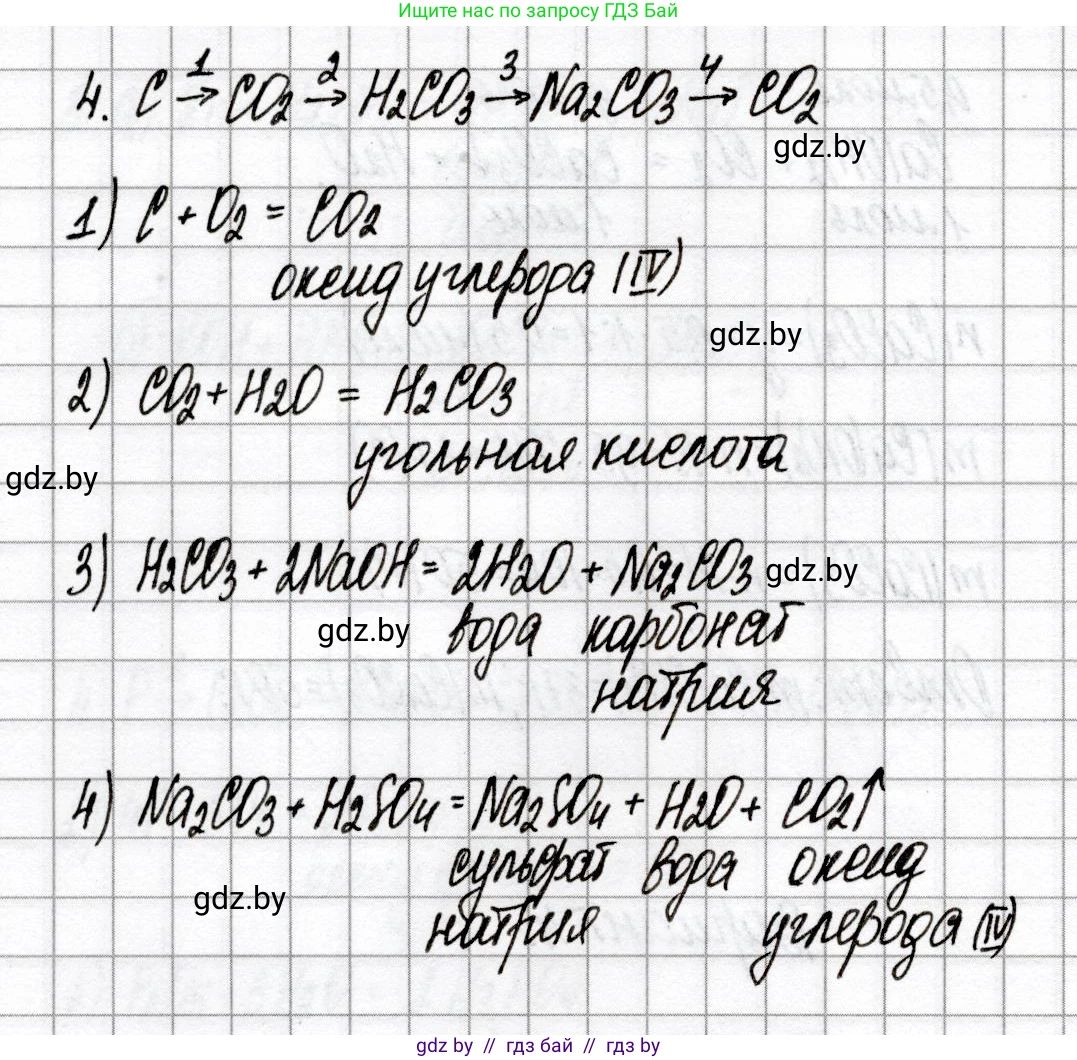 Ищите нас по запросу ГДЗ Бай
4. C →¹ CO₂ →² H₂CO₃ →³ Na₂CO₃ →⁴ CO₂
gdz.by
1) C + O₂ = CO₂
оксид углерода (IV)
gdz.by
2) CO₂ + H₂O = H₂CO₃
угольная кислота
gdz.by
3) H₂CO₃ + 2NaOH = 2H₂O + Na₂CO₃
gdz.by
gdz.by
вода карбонат
натрия
4) Na₂CO₃ + H₂SO₄ = Na₂SO₄ + H₂O + CO₂↑
сульфат вода оксид
gdz.by
натрия углерода (IV)
gdz by // гдз бай // gdz by